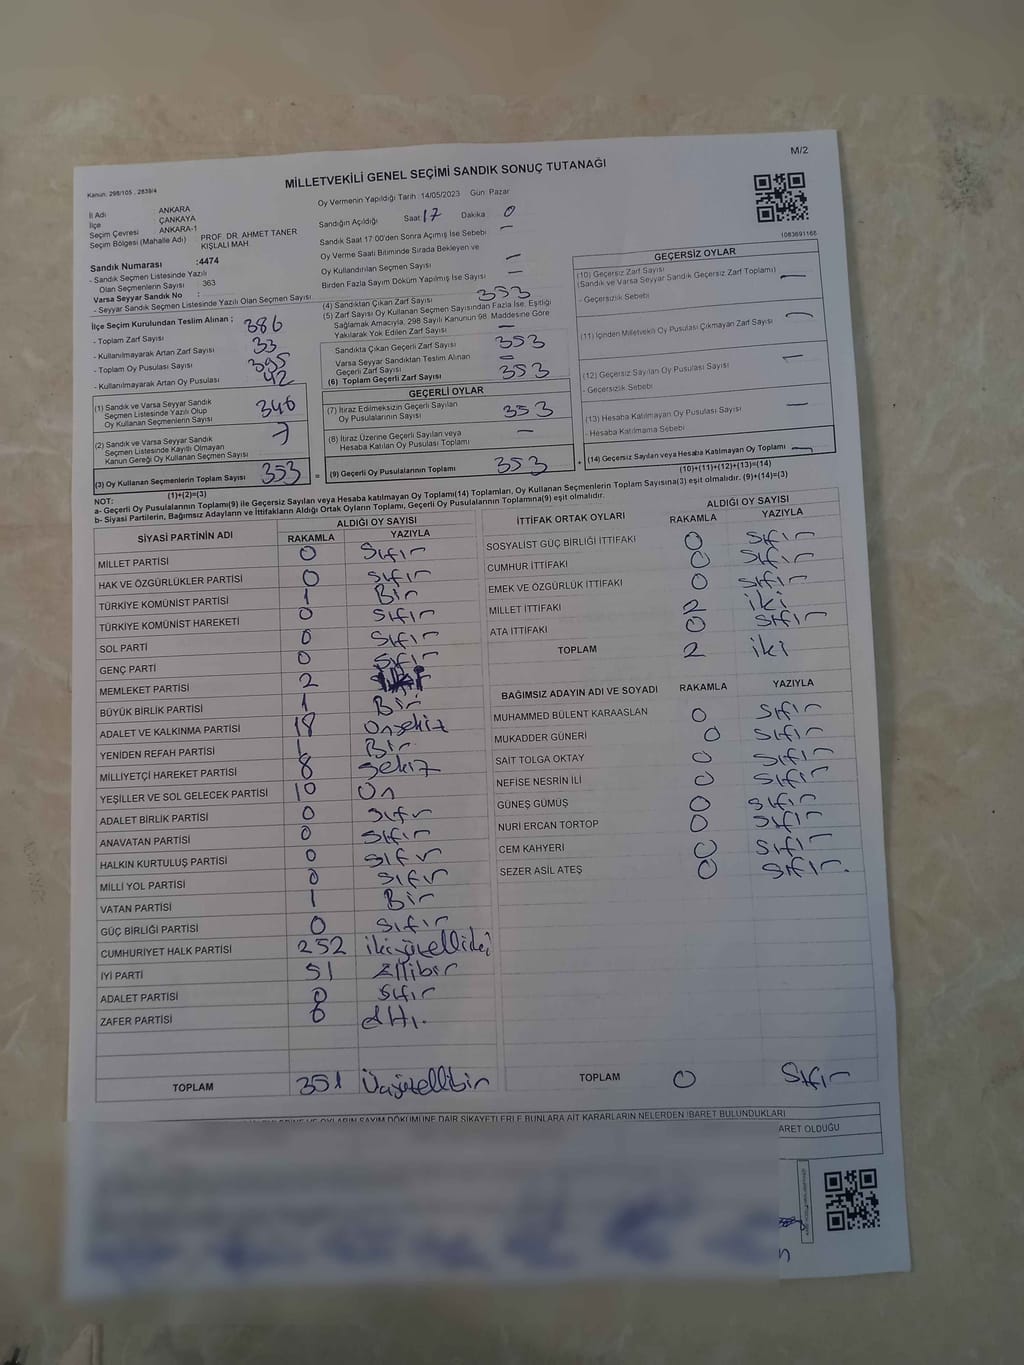 M/2
Kanun: 298/105 , 2839/4
MİLLETVEKİLİ GENEL SEÇİMİ SANDIK SONUÇ TUTANAĞI
İl Adı ANKARA
İlçe ÇANKAYA
Seçim Çevresi ANKARA-1
Seçim Bölgesi (Mahalle Adı) PROF. DR. AHMET TANER KIŞLALI MAH.
Sandık Numarası :4474
- Sandık Seçmen Listesinde Yazılı
Olan Seçmenlerin Sayısı 363
Varsa Seyyar Sandık No :
- Seyyar Sandık Seçmen Listesinde Yazılı Olan Seçmen Sayısı
Oy Vermenin Yapıldığı Tarih : 14/05/2023 Gün: Pazar
Sandığın Açıldığı Saat 17 Dakika 0
Sandık Saat 17:00'den Sonra Açılmış İse Sebebi —
Oy Verme Saati Bitiminde Sırada Bekleyen ve
Oy Kullandırılan Seçmen Sayısı —
Birden Fazla Sayım Döküm Yapılmış İse Sayısı —
1083691166
İlçe Seçim Kurulundan Teslim Alınan ;
- Toplam Zarf Sayısı 386
- Kullanılmayarak Artan Zarf Sayısı 33
- Toplam Oy Pusulası Sayısı 395
- Kullanılmayarak Artan Oy Pusulası 42
(1) Sandık ve Varsa Seyyar Sandık
Seçmen Listesinde Yazılı Olup
Oy Kullanan Seçmenlerin Sayısı 346
(2) Sandık ve Varsa Seyyar Sandık
Seçmen Listesinde Kayıtlı Olmayan
Kanun Gereği Oy Kullanan Seçmen Sayısı 7
(3) Oy Kullanan Seçmenlerin Toplam Sayısı 353
(1)+(2)=(3)
(4) Sandıktan Çıkan Zarf Sayısı 353
(5) Zarf Sayısı Oy Kullanan Seçmen Sayısından Fazla İse, Eşitliği
Sağlamak Amacıyla, 298 Sayılı Kanunun 98. Maddesine Göre
Yakılarak Yok Edilen Zarf Sayısı —
Sandıkta Çıkan Geçerli Zarf Sayısı 353
Varsa Seyyar Sandıktan Teslim Alınan
Geçerli Zarf Sayısı —
(6) Toplam Geçerli Zarf Sayısı 353
GEÇERLİ OYLAR
(7) İtiraz Edilmeksizin Geçerli Sayılan
Oy Pusulalarının Sayısı 353
(8) İtiraz Üzerine Geçerli Sayılan veya
Hesaba Katılan Oy Pusulası Toplamı —
= (9) Geçerli Oy Pusulalarının Toplamı 353
GEÇERSİZ OYLAR
(10) Geçersiz Zarf Sayısı
(Sandık ve Varsa Seyyar Sandık Geçersiz Zarf Toplamı) —
- Geçersizlik Sebebi
(11) İçinden Milletvekili Oy Pusulası Çıkmayan Zarf Sayısı —
(12) Geçersiz Sayılan Oy Pusulası Sayısı —
- Geçersizlik Sebebi
(13) Hesaba Katılmayan Oy Pusulası Sayısı —
- Hesaba Katılmama Sebebi
+ (14) Geçersiz Sayılan veya Hesaba Katılmayan Oy Toplamı —
(10)+(11)+(12)+(13)=(14)
NOT:
a- Geçerli Oy Pusulalarının Toplamı(9) ile Geçersiz Sayılan veya Hesaba katılmayan Oy Toplamı(14) Toplamları, Oy Kullanan Seçmenlerin Toplam Sayısına(3) eşit olmalıdır. (9)+(14)=(3)
b- Siyasi Partilerin, Bağımsız Adayların ve İttifakların Aldığı Ortak Oyların Toplamı, Geçerli Oy Pusulalarının Toplamına(9) eşit olmalıdır.
SİYASİ PARTİNİN ADI
ALDIĞI OY SAYISI
RAKAMLA YAZIYLA
MİLLET PARTİSİ 0 Sıfır
HAK VE ÖZGÜRLÜKLER PARTİSİ 0 Sıfır
TÜRKİYE KOMÜNİST PARTİSİ 1 Bir
TÜRKİYE KOMÜNİST HAREKETİ 0 Sıfır
SOL PARTİ 0 Sıfır
GENÇ PARTİ 0 Sıfır
MEMLEKET PARTİSİ 2
BÜYÜK BİRLİK PARTİSİ 1 Bir
ADALET VE KALKINMA PARTİSİ 18 Onsekiz
YENİDEN REFAH PARTİSİ 1 Bir
MİLLİYETÇİ HAREKET PARTİSİ 8 Sekiz
YEŞİLLER VE SOL GELECEK PARTİSİ 10 On
ADALET BİRLİK PARTİSİ 0 Sıfır
ANAVATAN PARTİSİ 0 Sıfır
HALKIN KURTULUŞ PARTİSİ 0 Sıfır
MİLLİ YOL PARTİSİ 0 Sıfır
VATAN PARTİSİ 1 Bir
GÜÇ BİRLİĞİ PARTİSİ 0 Sıfır
CUMHURİYET HALK PARTİSİ 252 ikiyüzelliiki
İYİ PARTİ 51 Ellibir
ADALET PARTİSİ 0 Sıfır
ZAFER PARTİSİ 6 altı.
TOPLAM 351 Üçyüzellibir
İTTİFAK ORTAK OYLARI
ALDIĞI OY SAYISI
RAKAMLA YAZIYLA
SOSYALİST GÜÇ BİRLİĞİ İTTİFAKI 0 Sıfır
CUMHUR İTTİFAKI 0 Sıfır
EMEK VE ÖZGÜRLÜK İTTİFAKI 0 Sıfır
MİLLET İTTİFAKI 2 iki
ATA İTTİFAKI 0 Sıfır
TOPLAM 2 iki
BAĞIMSIZ ADAYIN ADI VE SOYADI RAKAMLA YAZIYLA
MUHAMMED BÜLENT KARAASLAN 0 Sıfır
MUKADDER GÜNERİ 0 Sıfır
SAİT TOLGA OKTAY 0 Sıfır
NEFİSE NESRİN İLİ 0 Sıfır
GÜNEŞ GÜMÜŞ 0 Sıfır
NURİ ERCAN TORTOP 0 Sıfır
CEM KAHYERİ 0 Sıfır
SEZER ASİL ATEŞ 0 Sıfır.
TOPLAM 0 Sıfır
OYLARIN SAYIM DÖKÜMÜNE DAİR ŞİKAYETLERLE BUNLARA AİT KARARLARIN NELERDEN İBARET BULUNDUKLARI
OLDUĞU